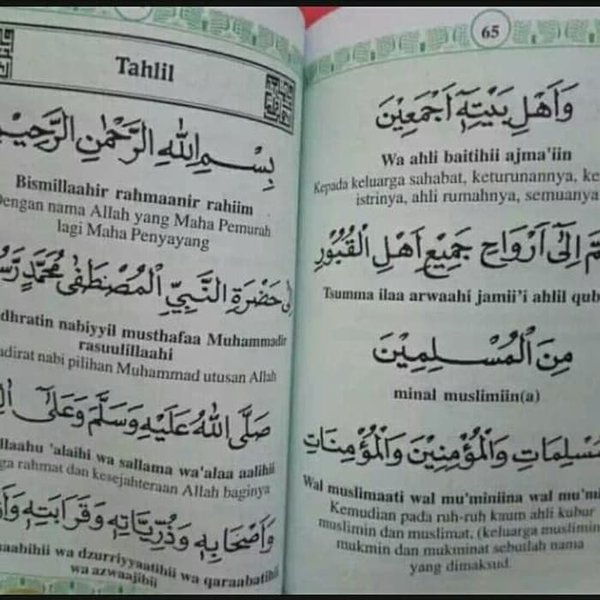 Tahlil
بِسْمِ اللهِ الرَّحْمٰنِ الرَّحِيْمِ
Bismillaahir rahmaanir rahiim
Dengan nama Allah yang Maha Pemurah
lagi Maha Penyayang
اِلٰى حَضْرَةِ النَّبِيِّ الْمُصْطَفٰى مُحَمَّدٍ
nabiyyil musthafaa Muhammadir
rasuulillaahi
nabi pilihan Muhammad utusan Allah
صَلَّى اللهُ عَلَيْهِ وَسَلَّمَ وَعَلٰى
'alaihi wa sallama wa'alaa aalihii
rahmat dan kesejahteraan Allah baginya
وَاَصْحَابِهٖ وَذُرِّيَّاتِهٖ وَقَرَابَتِهٖ
wa dzurriyyaatihii wa qaraabatihii
wa azwaajihii
65
وَاَهْلِ بَيْتِهٖٓ اَجْمَعِيْنَ
Wa ahli baitihii ajma'iin
Kepada keluarga sahabat, keturunannya,
istrinya, ahli rumahnya, semuanya
اِلٰٓى اَرْوَاحِ جَمِيْعِ اَهْلِ الْقُبُوْرِ
Tsumma ilaa arwaahi jamii'i ahlil
مِنَ الْمُسْلِمِيْنَ
minal muslimiin(a)
وَالْمُؤْمِنِيْنَ وَالْمُؤْمِنَاتِ
Wal muslimaati wal mu'miniina wal
Kemudian pada ruh-ruh kaum ahli kubur
muslimin dan muslimat, (keluarga muslimin
mukmin dan mukminat sebutlah nama
yang dimaksud